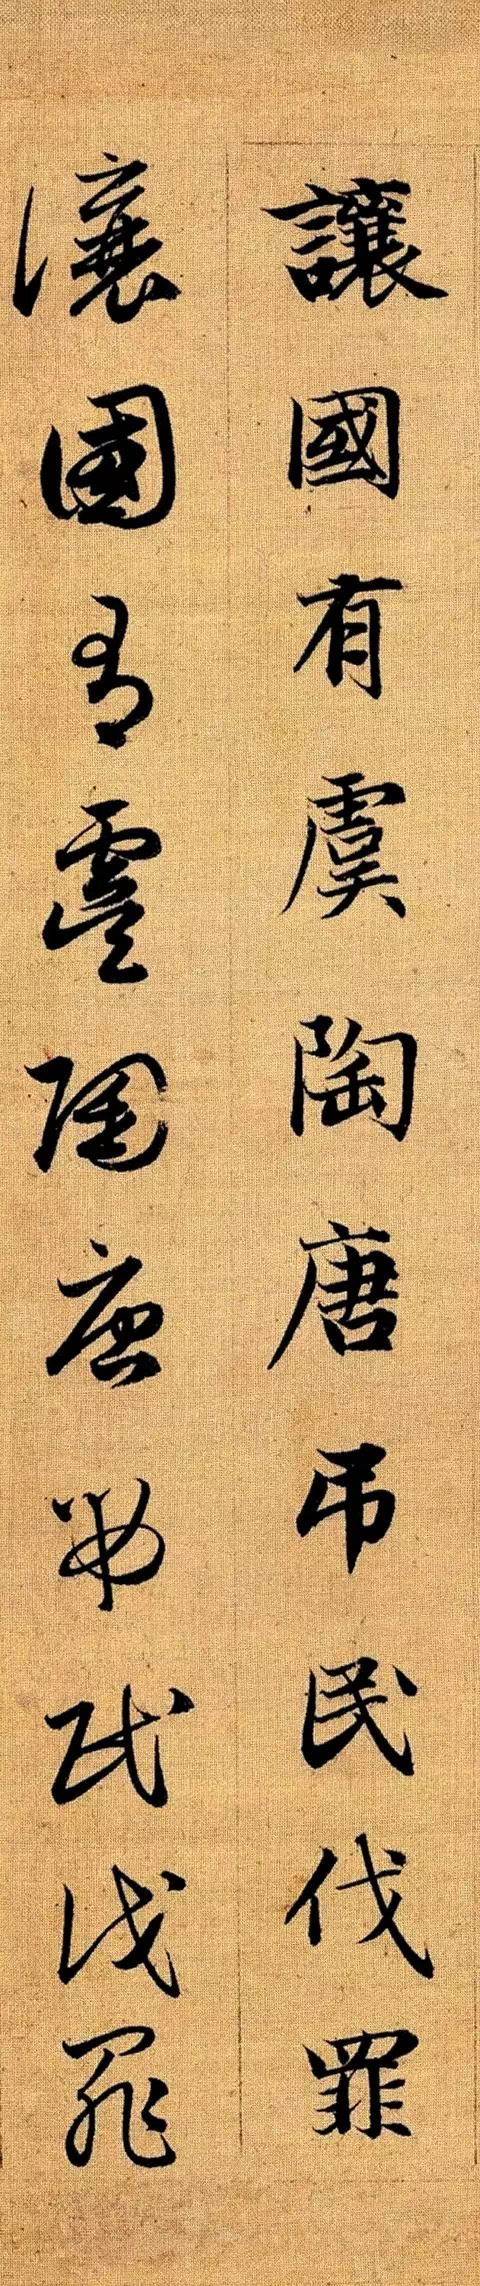 讓國有虞陶唐弔民伐罪
讓國有虞陶唐弔民伐罪